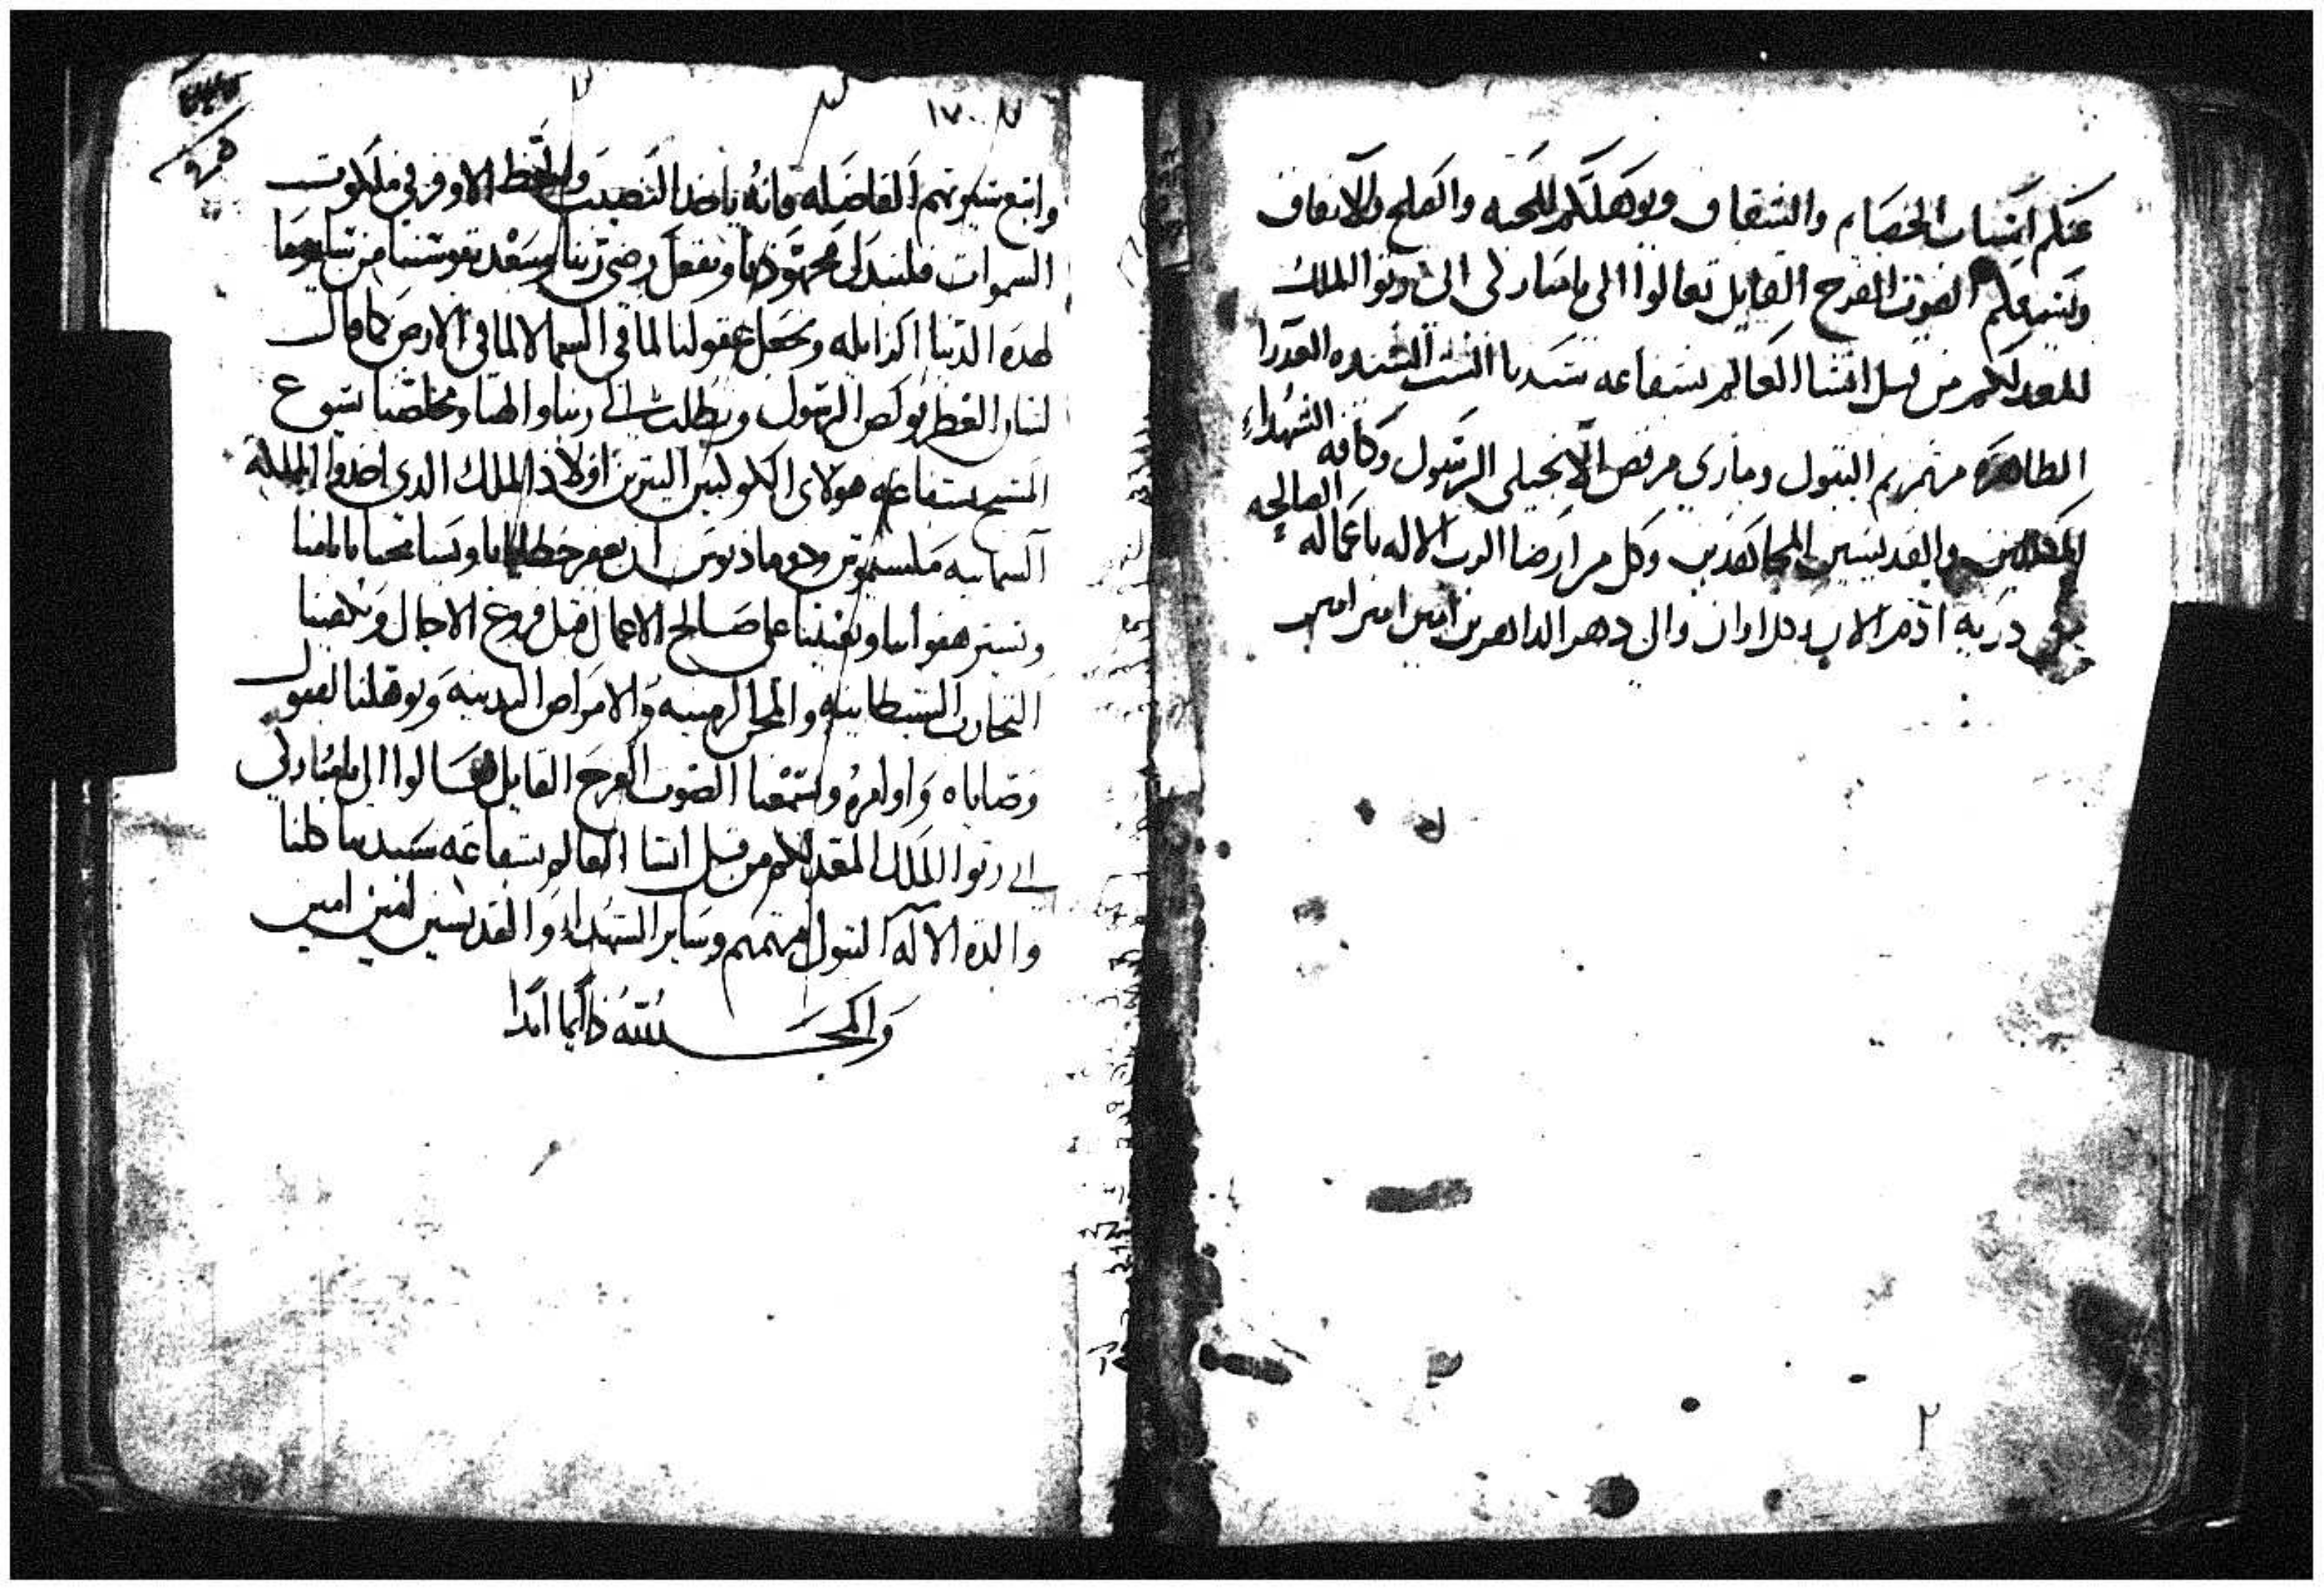 عنكم اسباب الخصام والشقاق ويوهلكم للمحبه والصلح والاتفاق
ويسمعكم الصوت الفرح القايل تعالوا الى يا مباركى ابى رثوا الملك
المعد لكم من قبل انشا العالم بشفاعه سيدتنا الست السيده العدرا
الطاهره مرتمريم البتول ومارى مرقص الانجيلى الرسول وكافه الشهداء
والقديسين المجاهدين وكل من ارضا الرب الاله باعماله الصالحه
من دريه ادم الان وكل اوان والى دهر الداهرين امين امين امين
٢
١٧
واتبع سيرتهم الفاضله فانه ياخد النصيب والحظ الاوفر فى ملكوت
السموات فلنبدل مجهودنا ونفعل رضى ربنا ونبعد نفوسنا من
هده الدنيا الزايله ونجعل عقولنا لما فى السما لا لما فى الارض كما قال
لسان العطر بولص الرسول ونطلب الى ربنا والهنا ومخلصنا يسوع
المسيح بشفاعه هولاى الكوكبين النيرين اولاد الملك الدى اخدوا المملكه
السماييه مكسيموس ودوماديوس ان يغفر خطايانا ويسامحنا باثامنا
ويستر هفواتنا ويعيننا على صالح الاعمال قبل فروغ الاجال ويكفينا
التجارب الشيطانيه والمحن الزمنيه والامراض البدنيه ويوهلنا لقبول
وصاياه واوامره ويسمعنا الصوت الفرح القايل تعالوا الى يا مباركى
ابى رثوا الملك المعد لكم من قبل انشا العالم بشفاعه سيدتنا كلنا
والده الاله البتول مرتمريم وساير الشهداء والقديسين امين امين
والمجد لله دايما ابدا